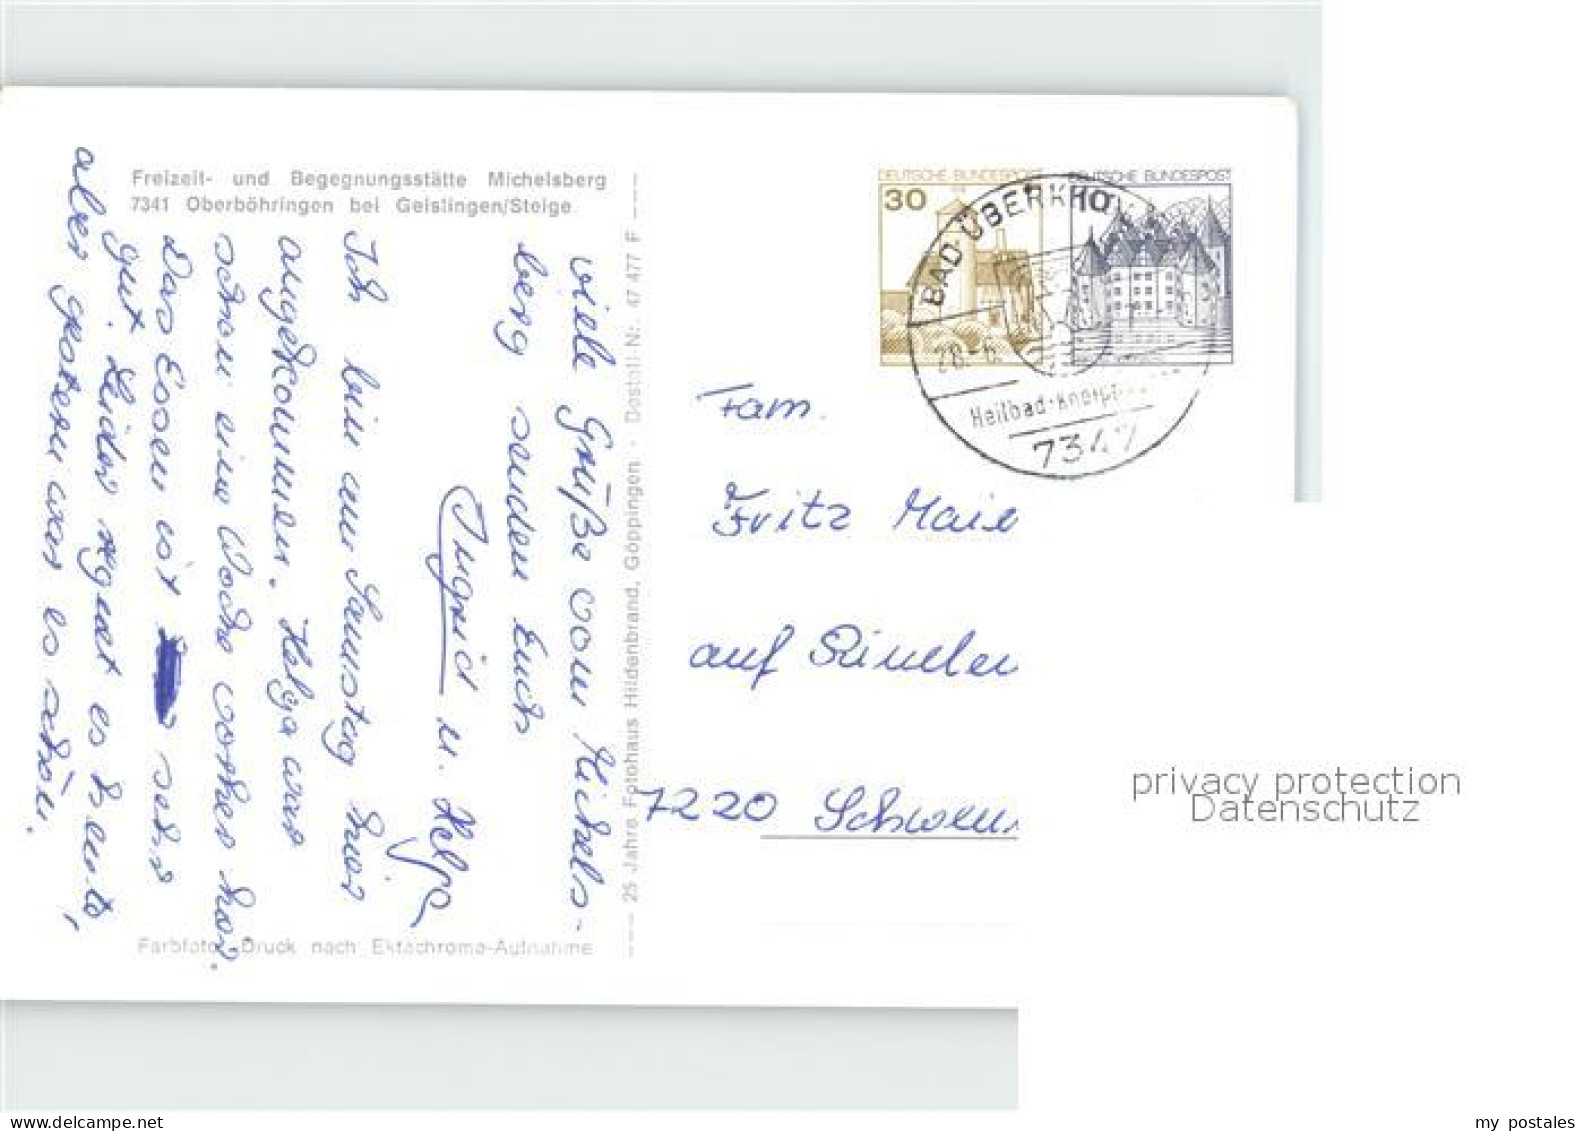 Freizeit- und Begegnungsstätte Michelsberg
7341 Oberböhringen bei Geislingen/Steige
viele Grüße vom Michels-
berg senden Euch
Ingrid u. Helga
Ich bin am Samstag hier
angekommen. Helga war
schon eine Woche vorher hier.
Das Essen ist sehr
gut. Leider regnet es heute,
aber gestern war es schön.
Farbfoto-Druck nach Ektachrome-Aufnahme
25 Jahre Fotohaus Hildenbrand, Göppingen · Bestell-Nr. 47 477 F
DEUTSCHE BUNDESPOST
30
DEUTSCHE BUNDESPOST
BAD ÜBERKI
28.-6.
Heilbad-Kneipp
7347
Fam.
Fritz Maie
auf Rinelen
7220 Schwenn
privacy protection
Datenschutz
my postales